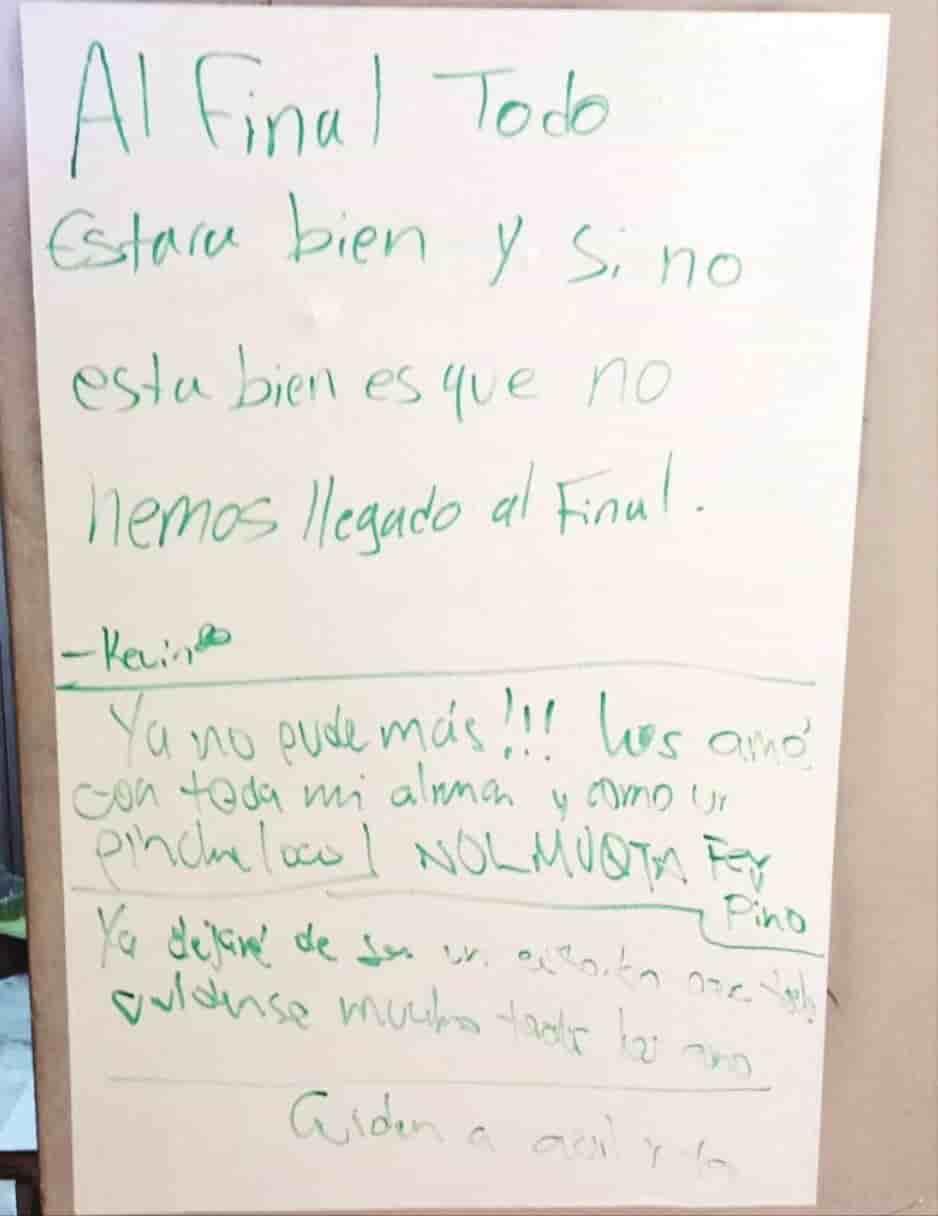 Al Final Todo
Estara bien y si no
esta bien es que no
hemos llegado al Final.
-Kevin
Ya no pude más!!! los amo
con toda mi alma y como un
pinche loco
Fer
Pino
Ya dejaré de ser un
cuidense mucho los amo
Cuiden a y